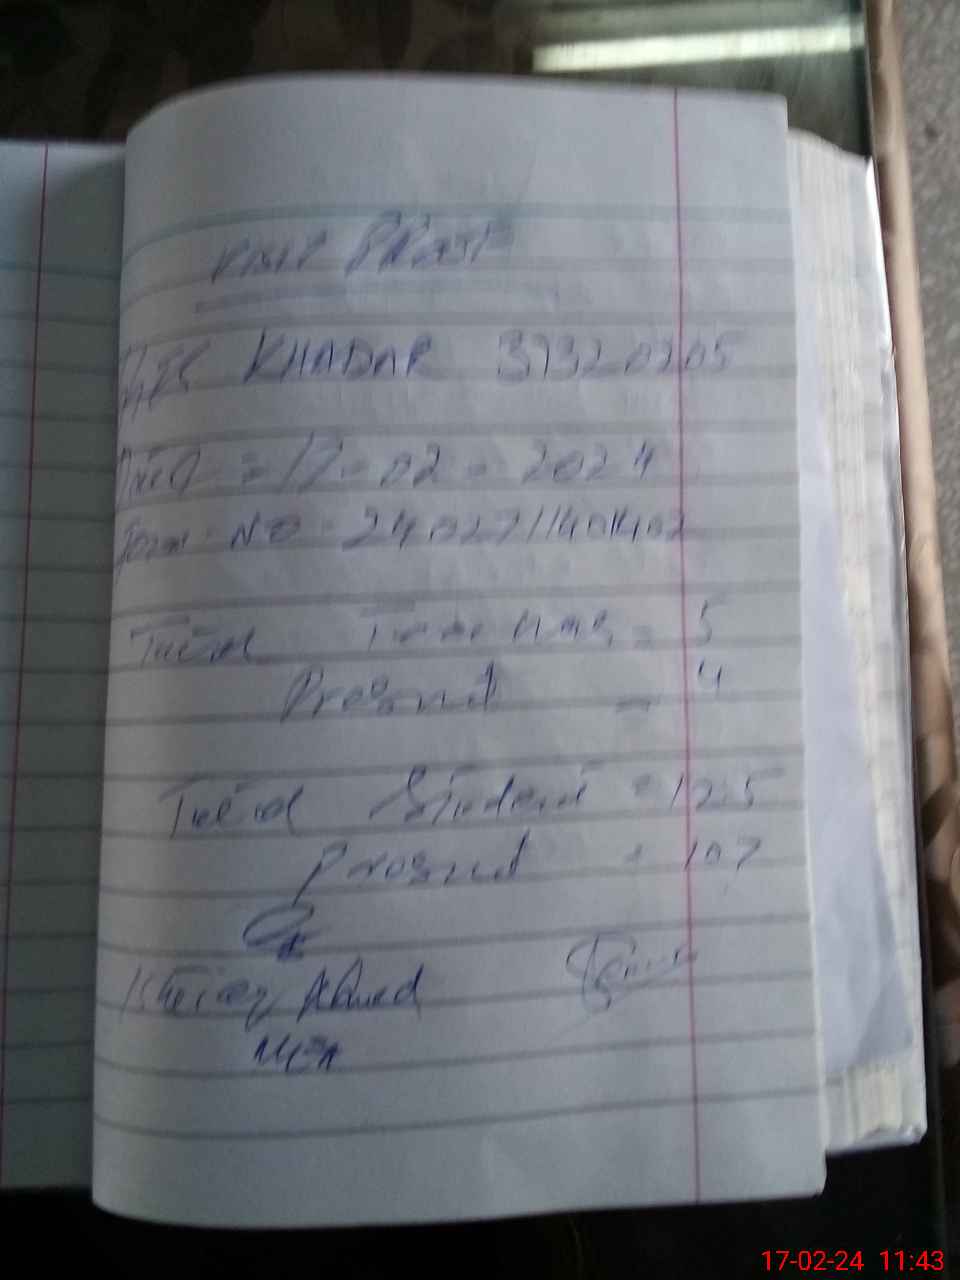 VISIT PROOF
KHADAR 37320205
Date = 17-02-2024
Form No 2402711401402
Total Teachers = 5
Present = 4
Total Student = 125
Present = 107
Ishtiaq Ahmed
MEA
17-02-24 11:43